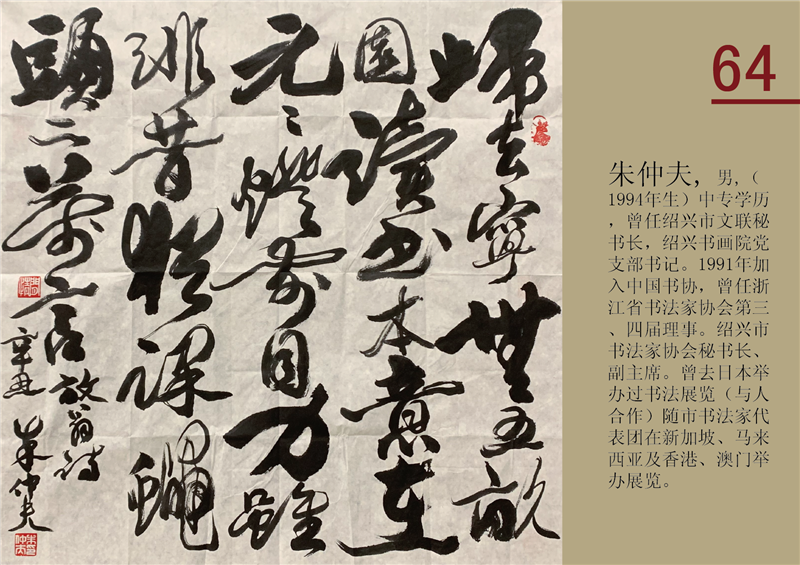 歸去寧無五畝
園讀书本意在
元〻燈前目力雖
非昔猶課蠅
頭二萬言 放翁詩
辛丑 朱仲夫
64
朱仲夫，男，（
1994年生）中专学历
，曾任绍兴市文联秘
书长，绍兴书画院党
支部书记。1991年加
入中国书协，曾任浙
江省书法家协会第三
、四届理事。绍兴市
书法家协会秘书长、
副主席。曾去日本举
办过书法展览（与人
合作）随市书法家代
表团在新加坡、马来
西亚及香港、澳门举
办展览。